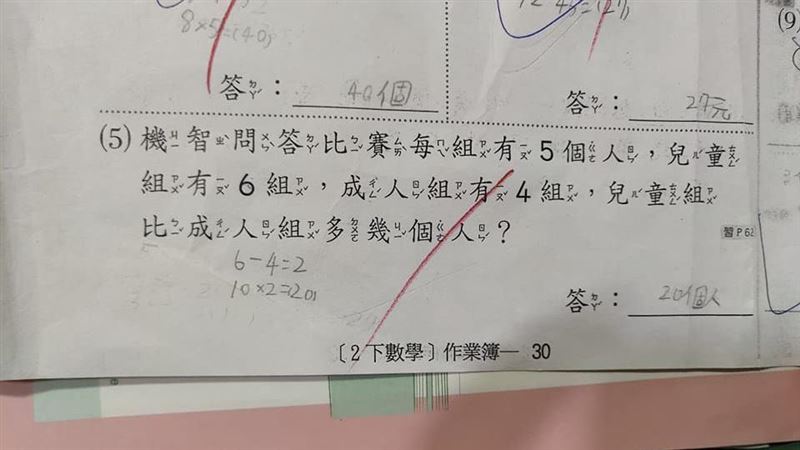 8×5=(40)
答：40個
答：27元
(9)
(5) 機智問答比賽每組有 5 個人，兒童
組有 6 組，成人組有 4 組，兒童組
比成人組多幾個人？
習P 62
6-4=2
10×2=(20)
答：20個人
〔2下數學〕作業簿— 30